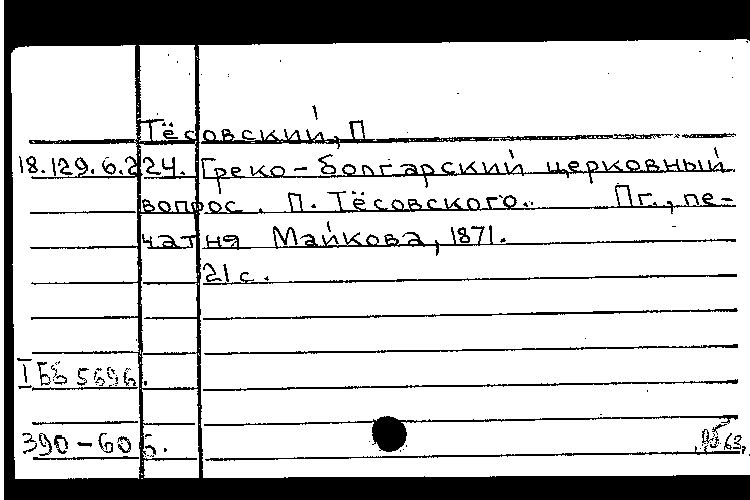 Тёсовский, П
18.129.6.224. Греко-болгарский церковный
вопрос. П. Тёсовского. Пг., пе-
чатня Майкова, 1871.
21 с.
390-60 б.